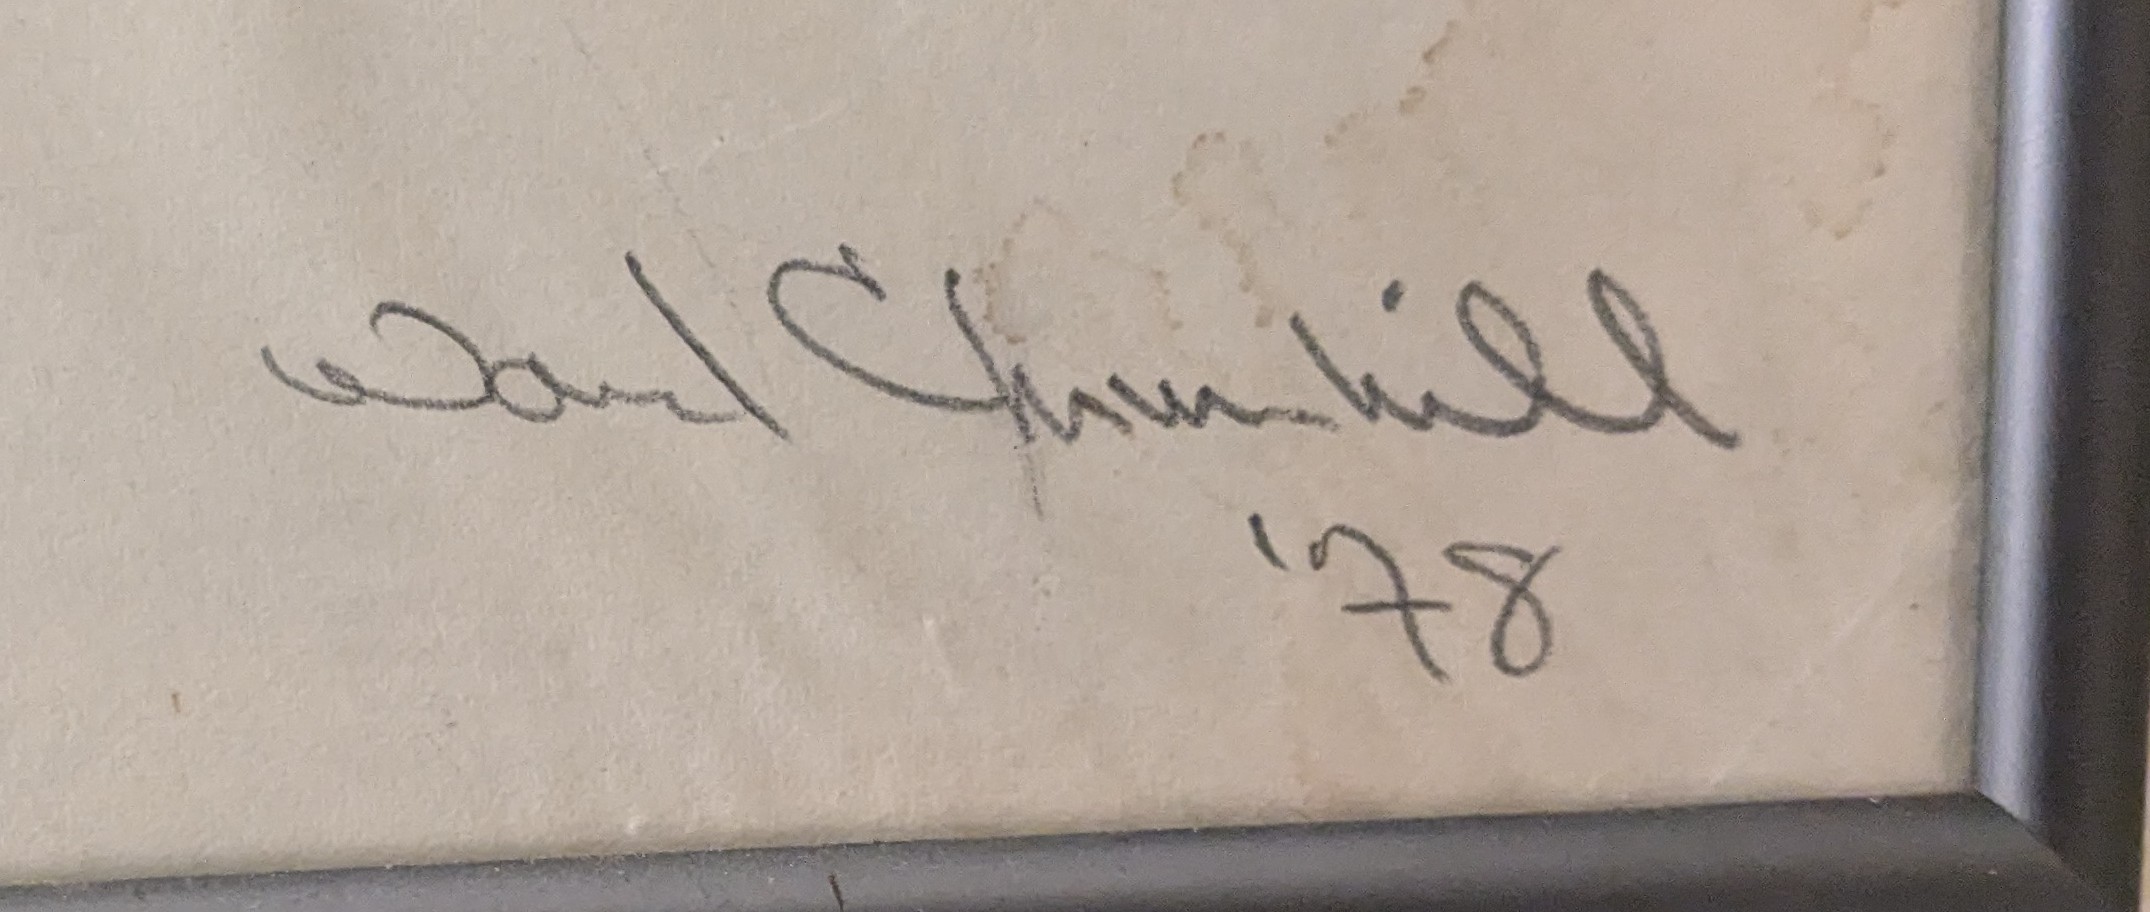 Ward Churchill
'78